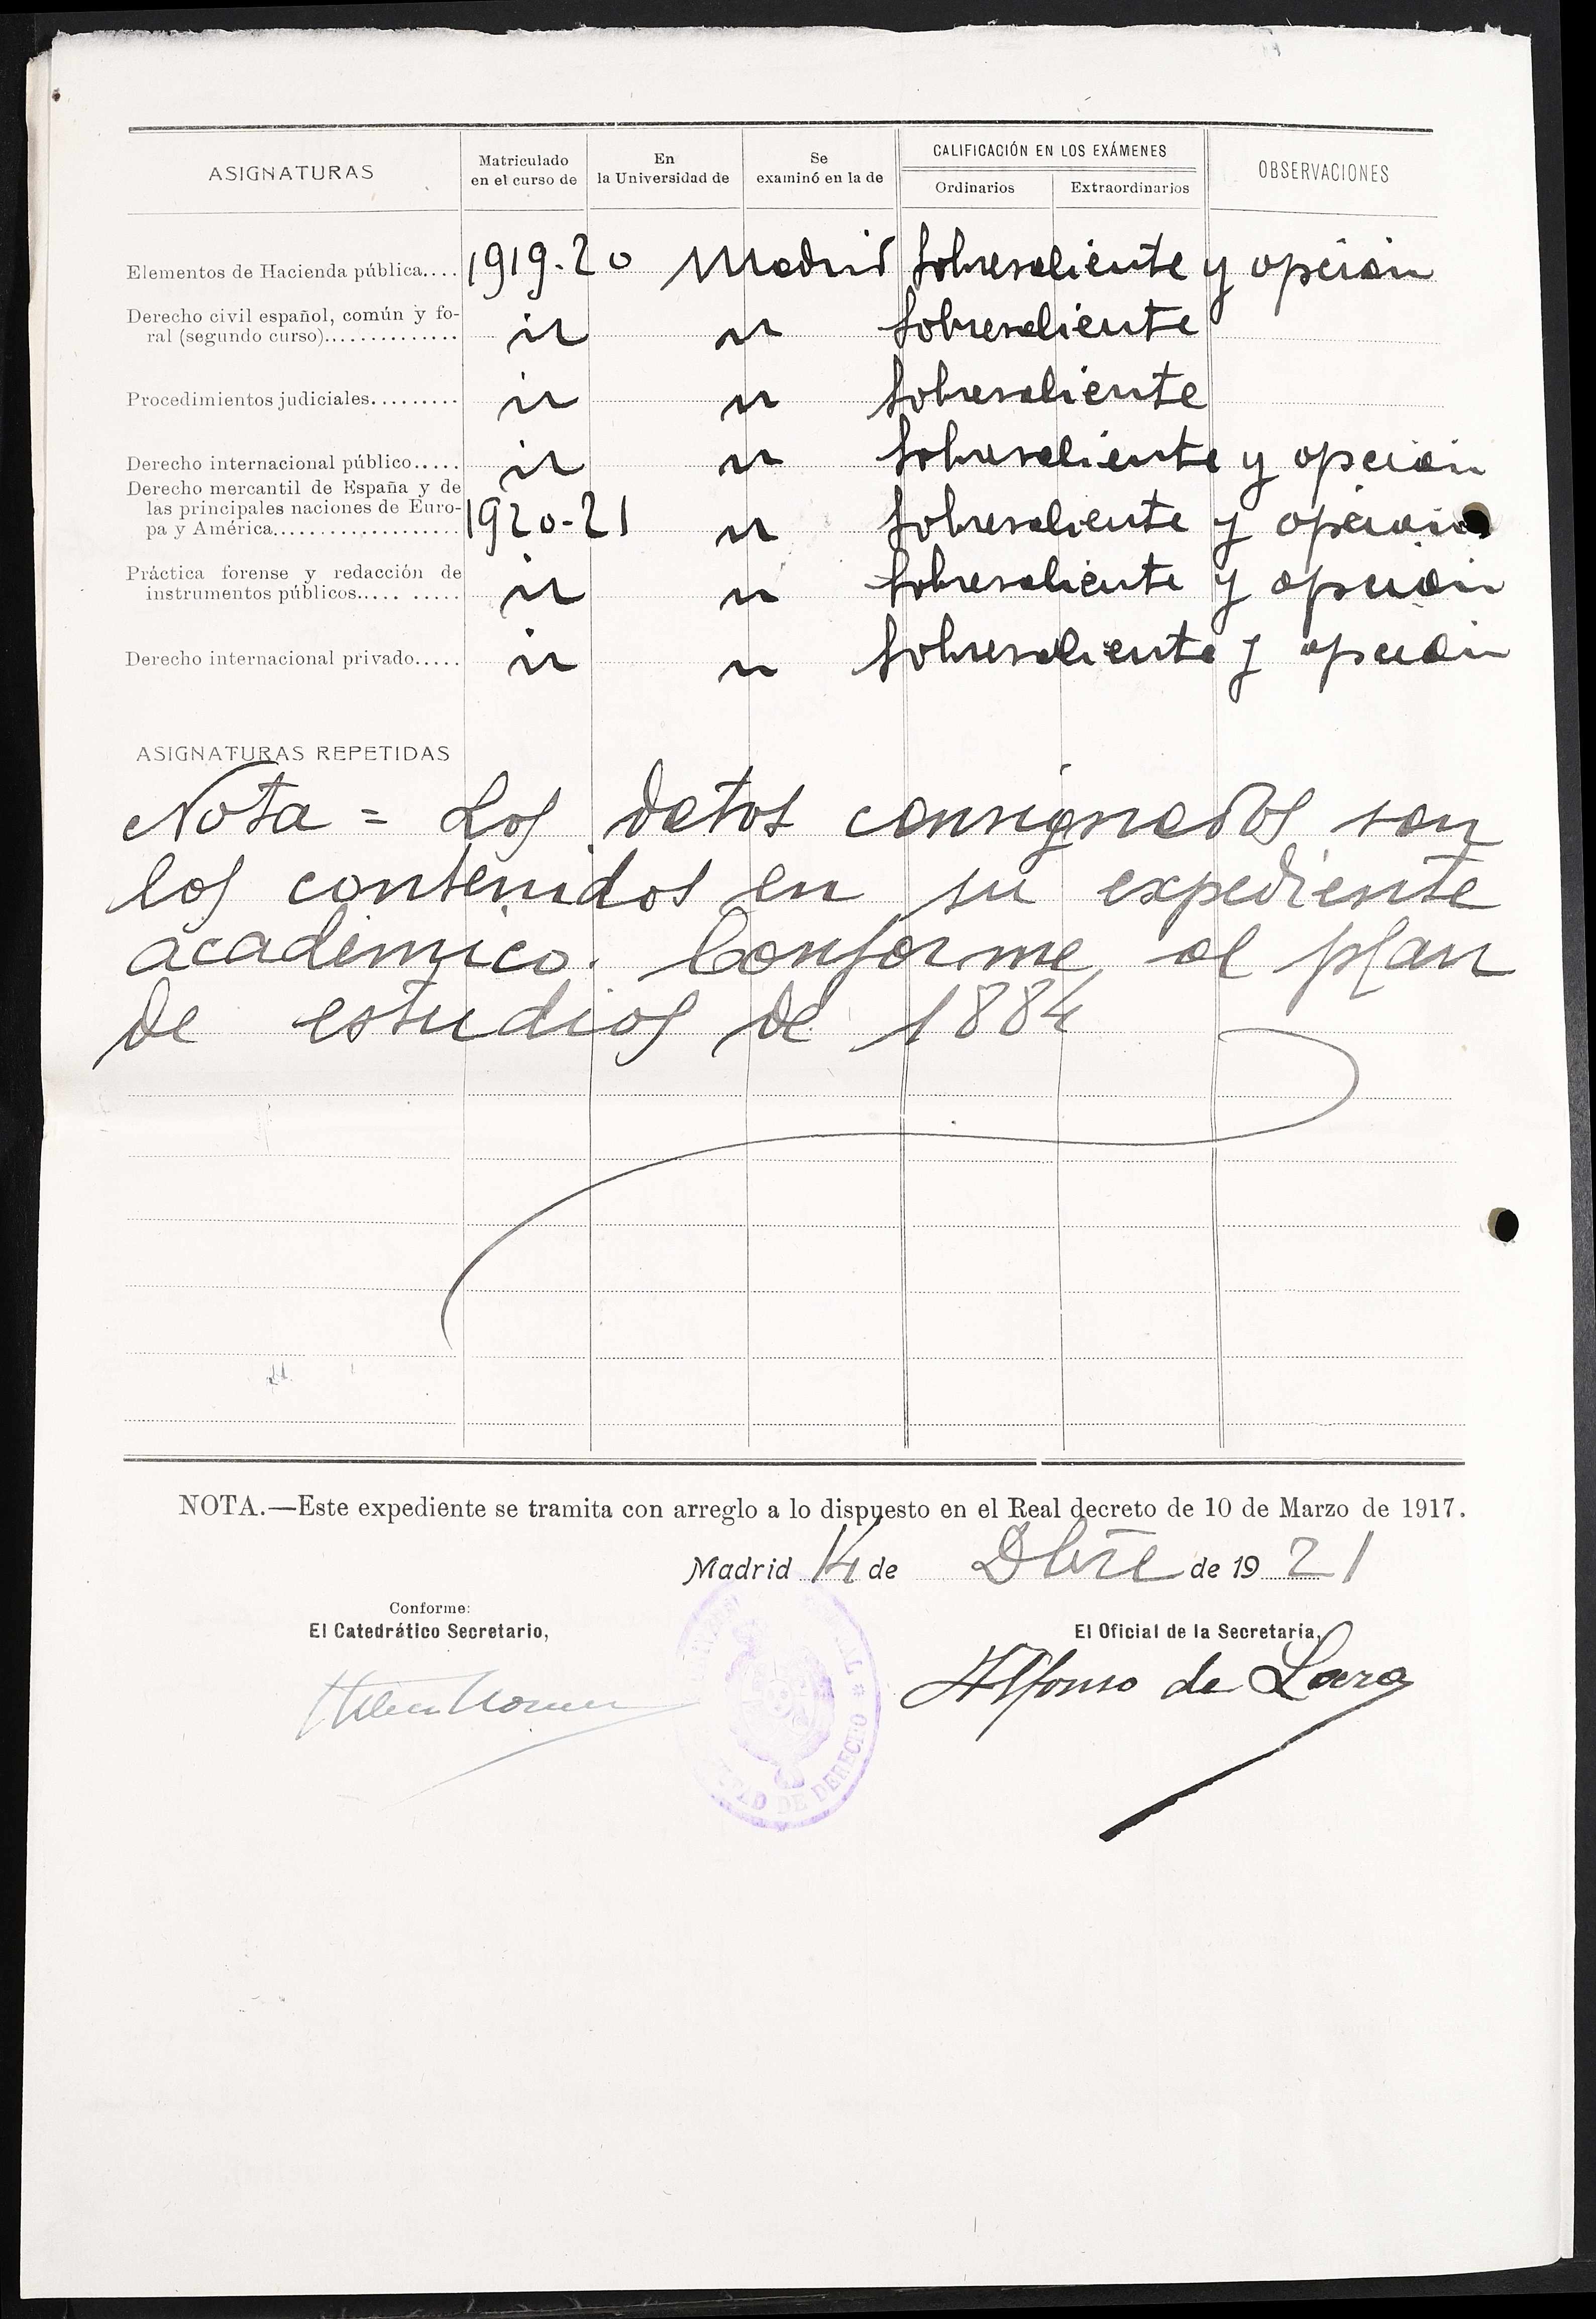 ASIGNATURAS
Matriculado
en el curso de
En
la Universidad de
Se
examinó en la de
CALIFICACIÓN EN LOS EXÁMENES
Ordinarios
Extraordinarios
OBSERVACIONES
Elementos de Hacienda pública.... 1919-20 Madrid Sobresaliente y opción
Derecho civil español, común y fo-
ral (segundo curso).............. id " Sobresaliente
Procedimientos judiciales......... id " Sobresaliente
Derecho internacional público..... id " Sobresaliente y opción
Derecho mercantil de España y de
las principales naciones de Euro-
pa y América................... 1920-21 " Sobresaliente y opción
Práctica forense y redacción de
instrumentos públicos..... ...... id " Sobresaliente y opción
Derecho internacional privado..... id " Sobresaliente y opción
ASIGNATURAS REPETIDAS
Nota = Los datos consignados son
los contenidos en su expediente
académico. Conforme al plan
de estudios de 1884
NOTA.—Este expediente se tramita con arreglo a lo dispuesto en el Real decreto de 10 de Marzo de 1917.
Madrid 14 de Dbre de 1921
Conforme:
El Catedrático Secretario,
El Oficial de la Secretaría,
Alfonso de Lara
DE DERECHO